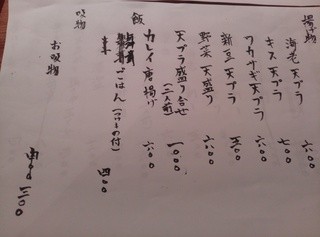 揚げ物
海老天プラ 六〇〇
キス天プラ 七〇〇
ワカサギ天プラ 六〇〇
新豆天プラ 五〇〇
野菜天盛り 六〇〇
天プラ盛り合せ(二人前) 一、〇〇〇
カレイ唐揚げ 六〇〇
飯
ごはん(つけもの付) 四〇〇
吸物
お吸物 三〇〇